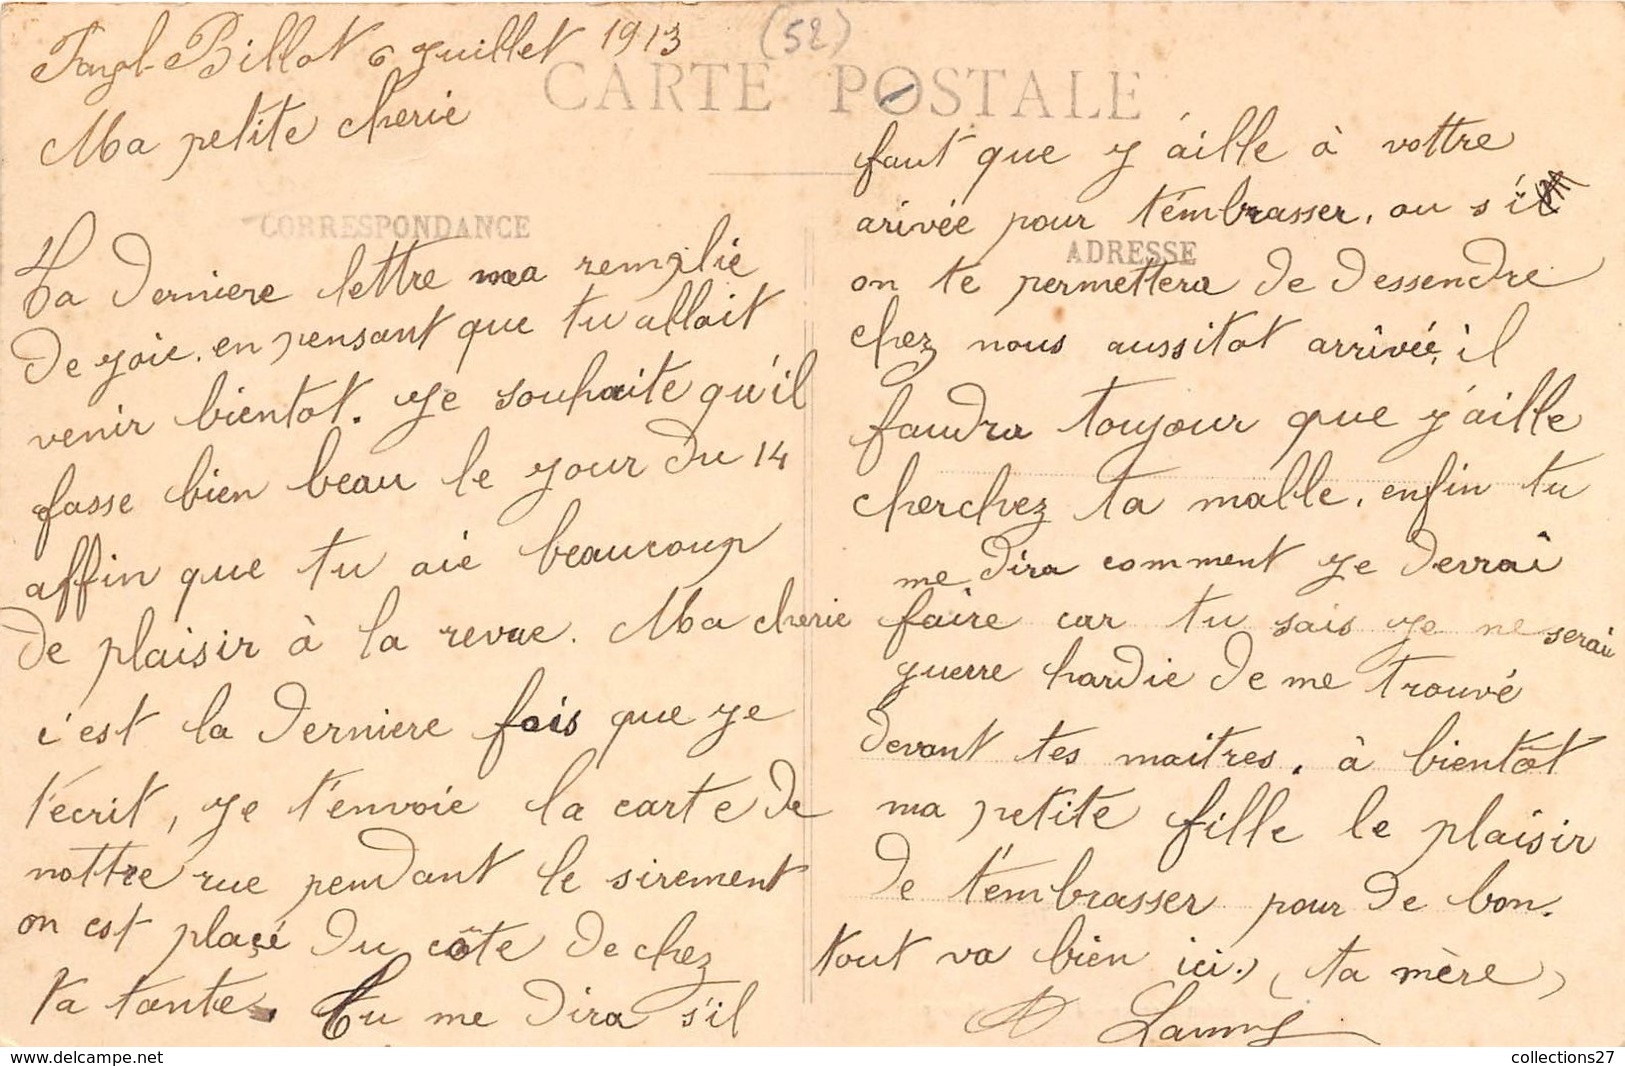 Fayl-Billot 6 juillet 1913
(52)
CARTE POSTALE
Ma petite cherie
CORRESPONDANCE
Ta derniere lettre ma remplie
de joie. en pensant que tu allait
venir bientot. Je souhaite qu'il
fasse bien beau le jour du 14
affin que tu aie beaucoup
de plaisir à la revue. Ma cherie
c'est la derniere fois que je
t'écrit, je t'envoie la carte de
nottre rue pendant le sirement
on est placé du côte de chez
ta tante. Tu me dira s'il
faut que j'aille à vottre
arivée pour t'émbrasser, ou s'il
ADRESSE
on te permettera de dessendre
chez nous aussitot arrivée, il
faudra toujour que j'aille
cherchez ta malle. enfin tu
me dira comment je devrai
faire car tu sais je ne serai
guerre hardie de me trouvé
devant tes maitres. à bientôt
ma petite fille le plaisir
de t'émbrasser pour de bon.
tout va bien ici. ta mère
collections27